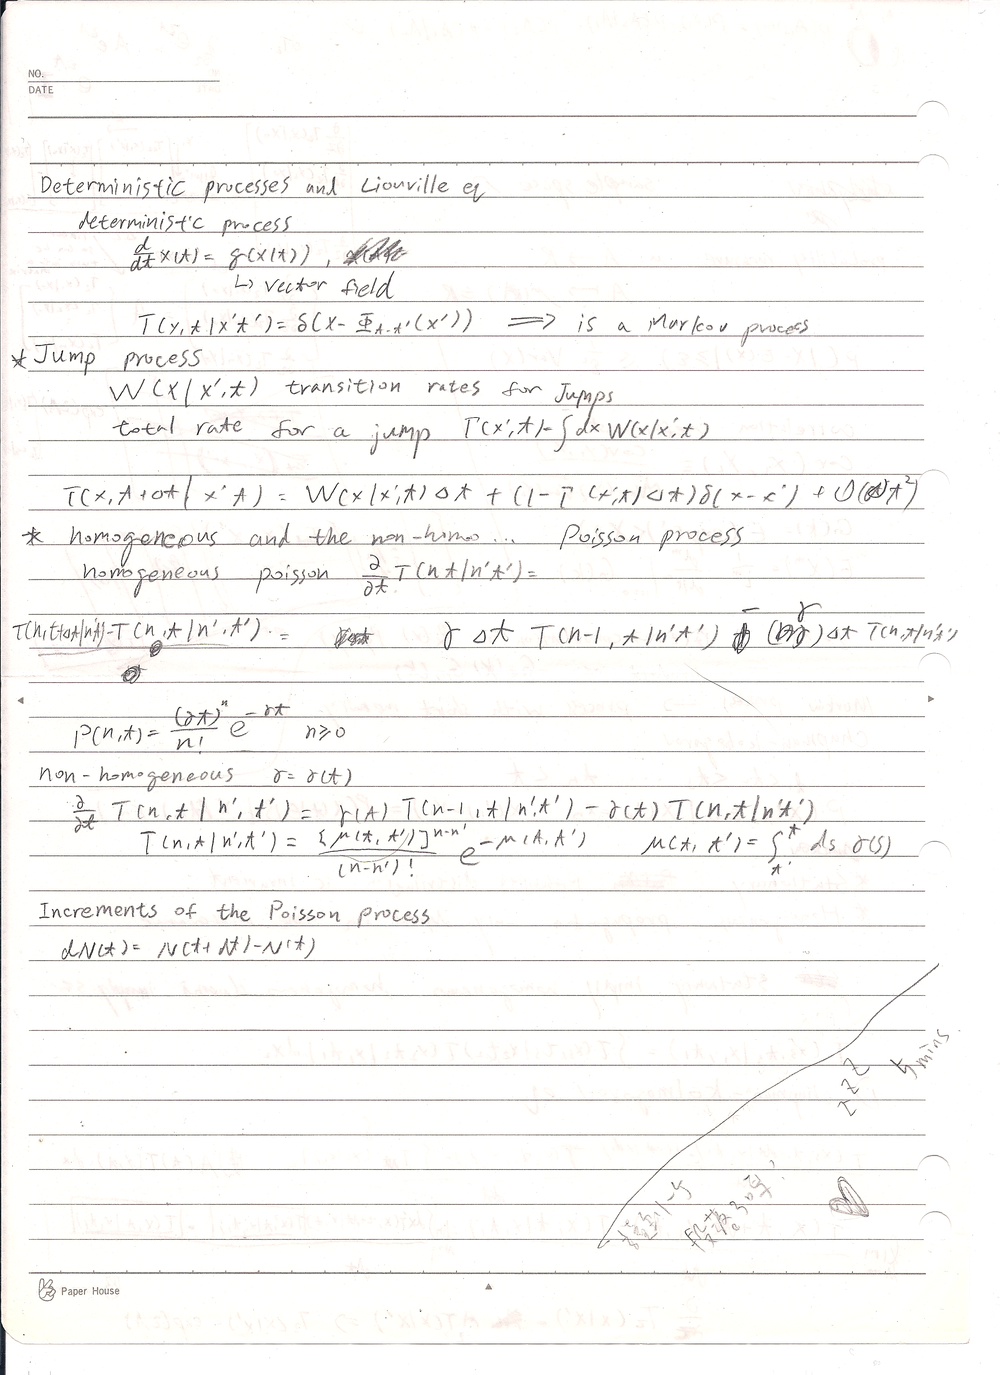 NO.
DATE
Deterministic processes and Liouville eq
deterministic process
d/dt x(t) = g(x(t)),
↳ vector field
T(x,t|x't') = δ(x-Φt-t'(x')) ⟹ is a Markov process
* Jump process
W(x|x',t) transition rates for Jumps
total rate for a jump Γ(x',t)=∫dx W(x|x',t)
T(x,t+Δt|x't) = W(x|x',t)Δt + (1-Γ(x',t)Δt)δ(x-x') + O(Δt²)
* homogeneous and the non-homo... Poisson process
homogeneous poisson ∂/∂t T(nt|n't')=
T(n,t+Δt|n't')-T(n,t|n',t') = γ Δt T(n-1,t|n't') - γ Δt T(n,t|n't')
P(n,t) = (γt)ⁿ/n! e^-γt n≥0
non-homogeneous γ=γ(t)
∂/∂t T(n,t|n',t') = γ(t) T(n-1,t|n',t') - γ(t) T(n,t|n't')
T(n,t|n',t') = [μ(t,t')]^n-n'/(n-n')! e^-μ(t,t') μ(t,t') = ∫t't ds γ(s)
Increments of the Poisson process
dN(t) = N(t+dt)-N(t)
z z z
5 mins
Paper House